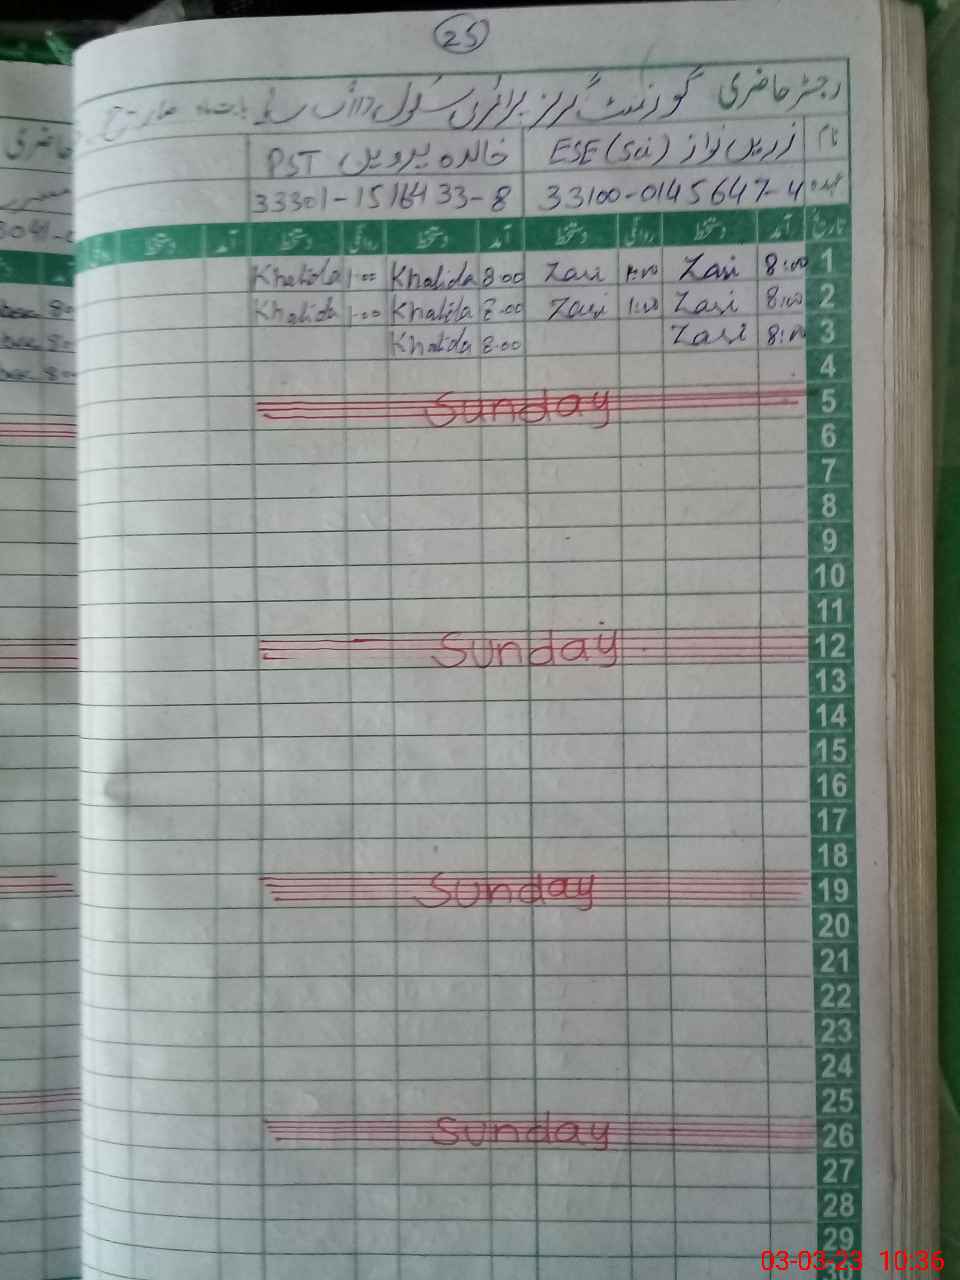 25
رجسٹر حاضری گورنمنٹ گرلز پرائمری سکول بابت ماہ مارچ
نام زرین نواز ESE (Sci) خالدہ پروین PST
عہدہ 33100-0145647-4 33301-1516433-8
تاریخ آمد دستخط روانگی دستخط آمد دستخط روانگی دستخط آمد دستخط
1 8:00 Zari 1:00 Zari 8:00 Khalida 1:00 Khalida
2 8:00 Zari 1:00 Zari 8:00 Khalida 1:00 Khalida
3 8:00 Zari 8:00 Khalida
4
5 Sunday
6
7
8
9
10
11
12 Sunday
13
14
15
16
17
18
19 Sunday
20
21
22
23
24
25
26 Sunday
27
28
29
03-03-23 10:36